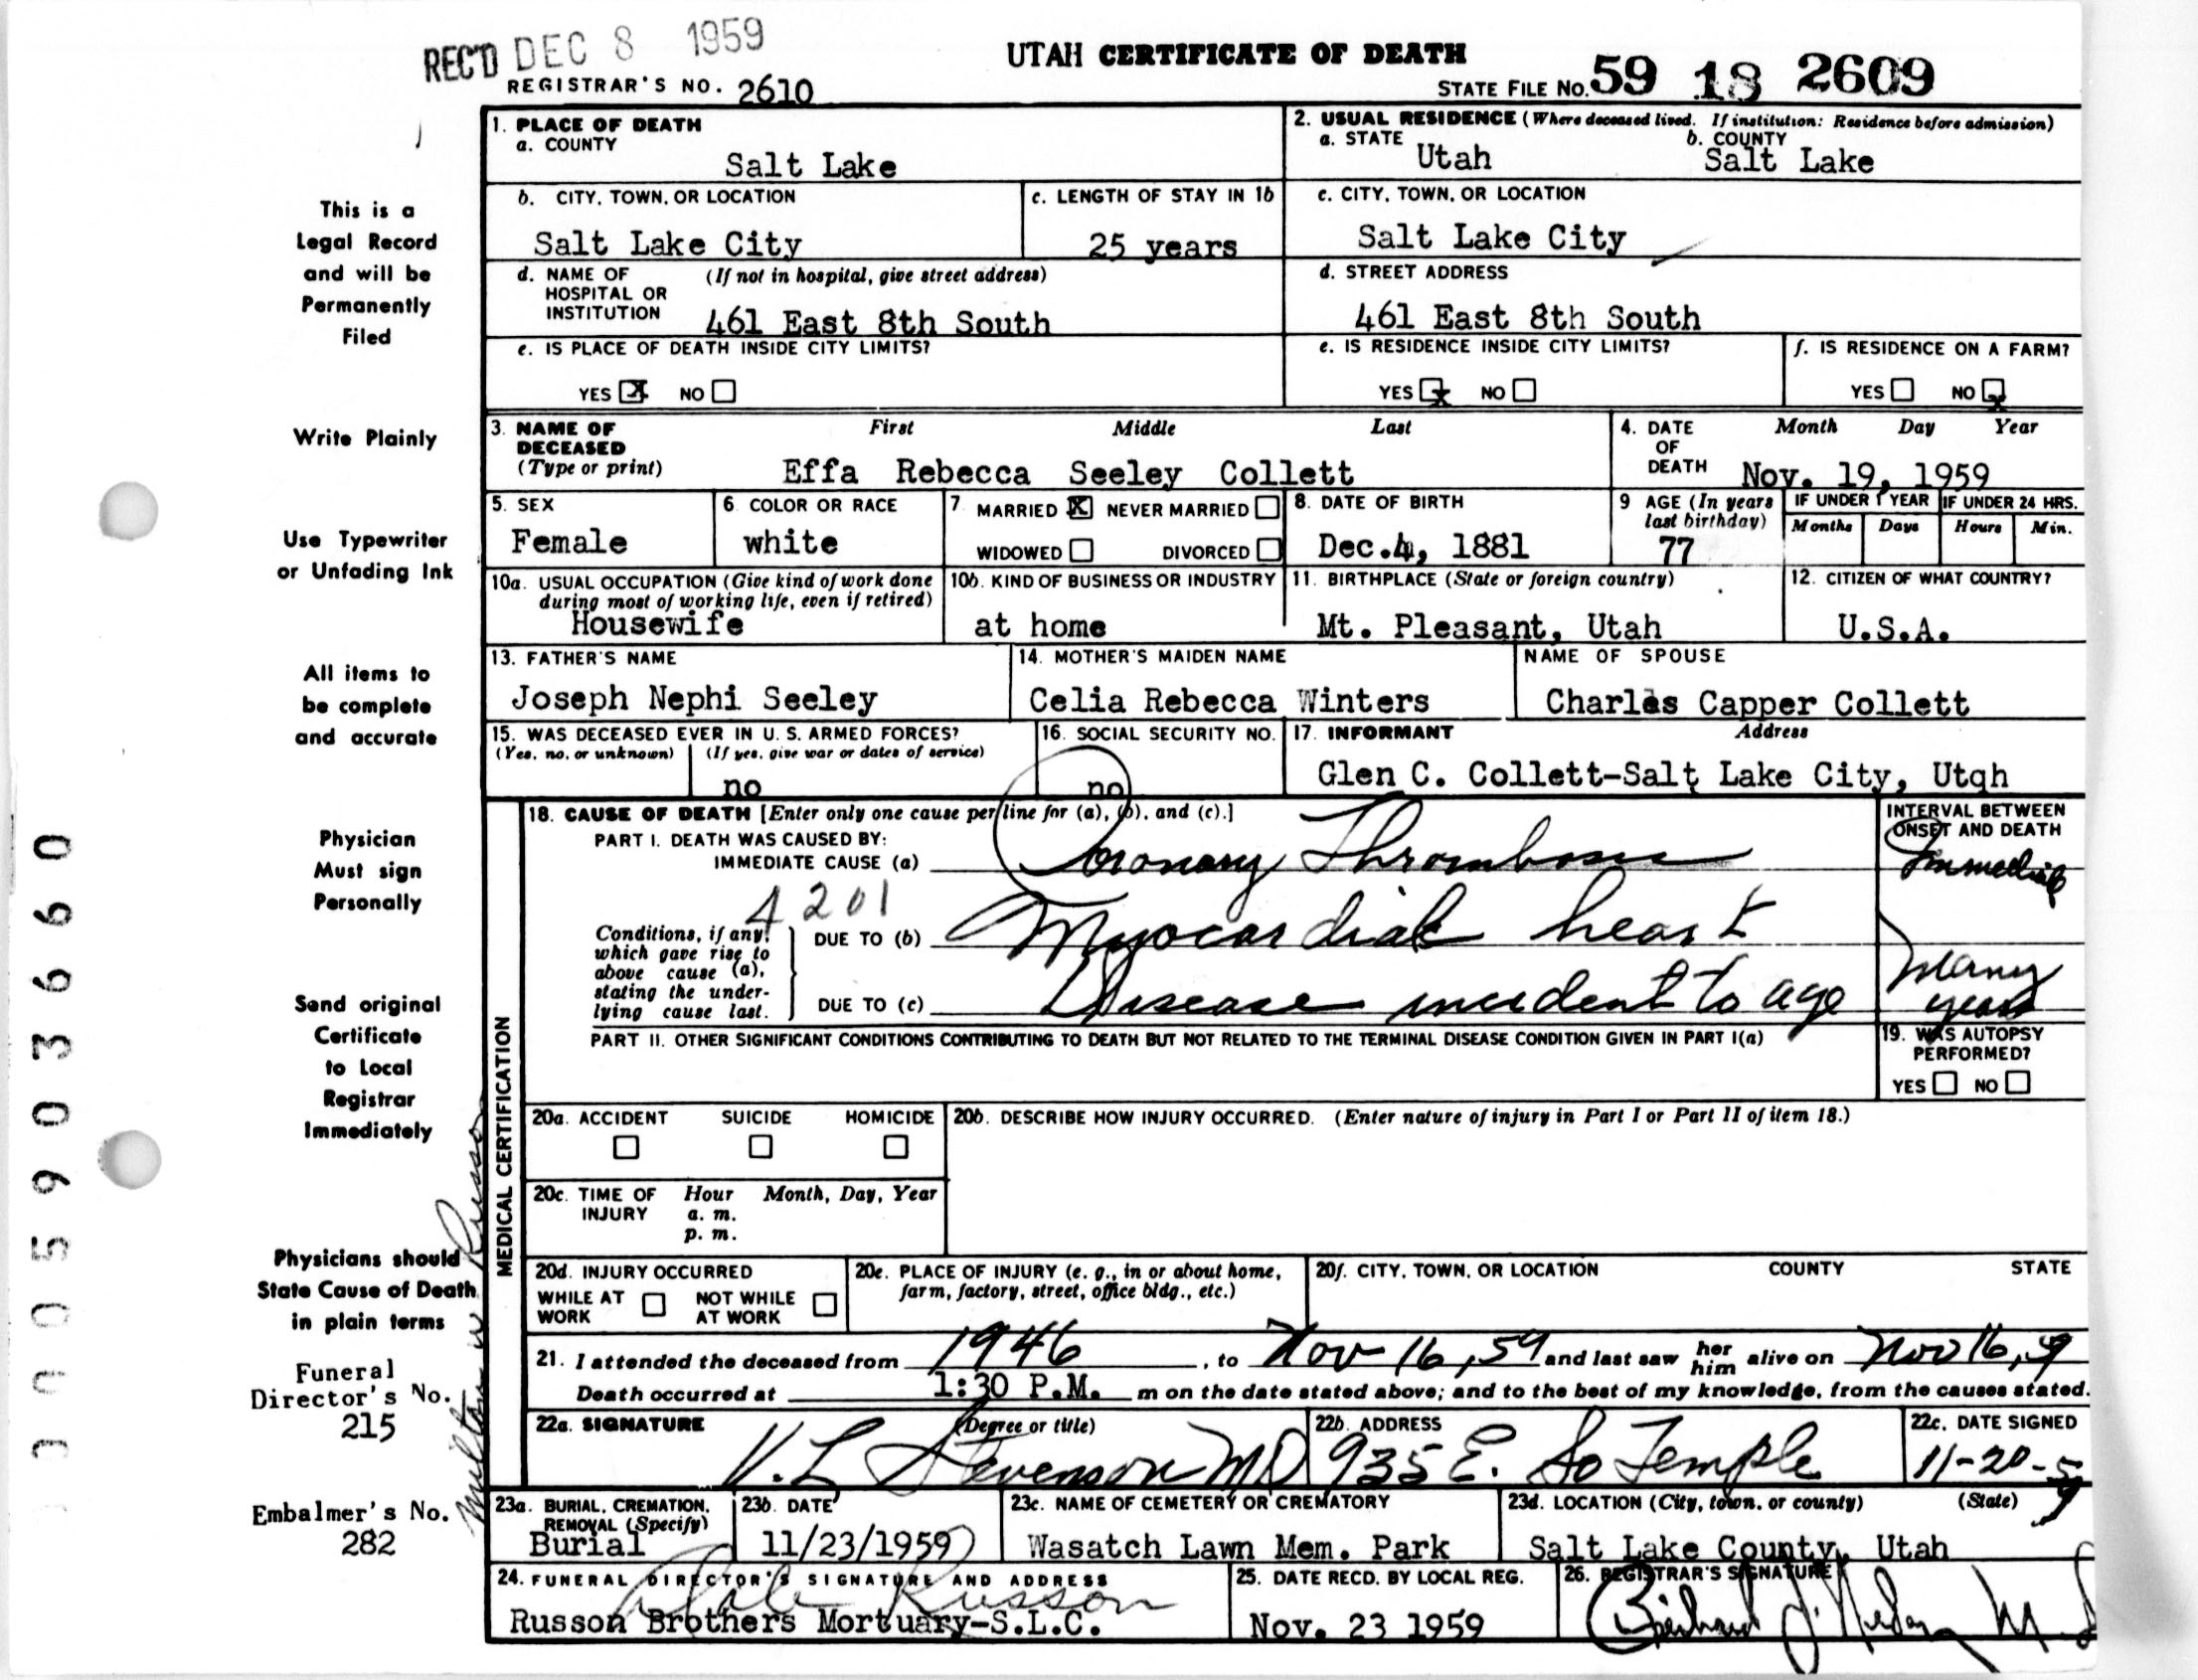 REC'D DEC 8 1959
UTAH CERTIFICATE OF DEATH
REGISTRAR'S NO. 2610
STATE FILE NO. 59 18 2609
1. PLACE OF DEATH
a. COUNTY
Salt Lake
2. USUAL RESIDENCE (Where deceased lived. If institution: Residence before admission)
a. STATE Utah b. COUNTY Salt Lake
b. CITY, TOWN, OR LOCATION
Salt Lake City
c. LENGTH OF STAY IN 1b
25 years
c. CITY, TOWN, OR LOCATION
Salt Lake City
d. NAME OF HOSPITAL OR INSTITUTION (If not in hospital, give street address)
461 East 8th South
d. STREET ADDRESS
461 East 8th South
e. IS PLACE OF DEATH INSIDE CITY LIMITS?
YES X NO
e. IS RESIDENCE INSIDE CITY LIMITS?
YES x NO
f. IS RESIDENCE ON A FARM?
YES NO x
3. NAME OF DECEASED (Type or print) First Middle Last
Effa Rebecca Seeley Collett
4. DATE OF DEATH Month Day Year
Nov. 19, 1959
5. SEX
Female
6. COLOR OR RACE
white
7. MARRIED X NEVER MARRIED
WIDOWED DIVORCED
8. DATE OF BIRTH
Dec.4, 1881
9 AGE (In years last birthday)
77
IF UNDER 1 YEAR
Months Days
IF UNDER 24 HRS.
Hours Min.
10a. USUAL OCCUPATION (Give kind of work done during most of working life, even if retired)
Housewife
10b. KIND OF BUSINESS OR INDUSTRY
at home
11. BIRTHPLACE (State or foreign country)
Mt. Pleasant, Utah
12. CITIZEN OF WHAT COUNTRY?
U.S.A.
13. FATHER'S NAME
Joseph Nephi Seeley
14. MOTHER'S MAIDEN NAME
Celia Rebecca Winters
NAME OF SPOUSE
Charles Capper Collett
15. WAS DECEASED EVER IN U. S. ARMED FORCES?
(Yes, no, or unknown) (If yes, give war or dates of service)
no
16. SOCIAL SECURITY NO.
no
17. INFORMANT Address
Glen C. Collett-Salt Lake City, Utqh
MEDICAL CERTIFICATION
18. CAUSE OF DEATH [Enter only one cause per line for (a), (b), and (c).]
PART I. DEATH WAS CAUSED BY:
IMMEDIATE CAUSE (a) Coronary Thrombosis
4201
Conditions, if any, which gave rise to above cause (a), stating the underlying cause last.
DUE TO (b) Myocardial heart
DUE TO (c) Disease incident to age
INTERVAL BETWEEN ONSET AND DEATH
many years
PART II. OTHER SIGNIFICANT CONDITIONS CONTRIBUTING TO DEATH BUT NOT RELATED TO THE TERMINAL DISEASE CONDITION GIVEN IN PART I(a)
19. WAS AUTOPSY PERFORMED?
YES NO
20a. ACCIDENT SUICIDE HOMICIDE
20b. DESCRIBE HOW INJURY OCCURRED. (Enter nature of injury in Part I or Part II of item 18.)
20c. TIME OF INJURY Hour Month, Day, Year
a. m.
p. m.
20d. INJURY OCCURRED
WHILE AT WORK NOT WHILE AT WORK
20e. PLACE OF INJURY (e. g., in or about home, farm, factory, street, office bldg., etc.)
20f. CITY, TOWN, OR LOCATION COUNTY STATE
21. I attended the deceased from 1946, to Nov 16, 59 and last saw her him alive on Nov 16, 59
Death occurred at 1:30 P.M. m on the date stated above; and to the best of my knowledge, from the causes stated.
22a. SIGNATURE (Degree or title)
V. L Stevenson MD
22b. ADDRESS
935 E. So Temple
22c. DATE SIGNED
11-20-59
23a. BURIAL, CREMATION, REMOVAL (Specify)
Burial
23b. DATE
11/23/1959
23c. NAME OF CEMETERY OR CREMATORY
Wasatch Lawn Mem. Park
23d. LOCATION (City, town, or county) (State)
Salt Lake County, Utah
24. FUNERAL DIRECTOR'S SIGNATURE AND ADDRESS
Dale Russon
Russon Brothers Mortuary-S.L.C.
25. DATE RECD. BY LOCAL REG.
Nov. 23 1959
26. REGISTRAR'S SIGNATURE
This is a
Legal Record
and will be
Permanently
Filed
Write Plainly
Use Typewriter
or Unfading Ink
All items to
be complete
and accurate
Physician
Must sign
Personally
Send original
Certificate
to Local
Registrar
Immediately
Physicians should
State Cause of Death
in plain terms
Funeral
Director's No.
215
Embalmer's No.
282
Milton W Russon
0005903660